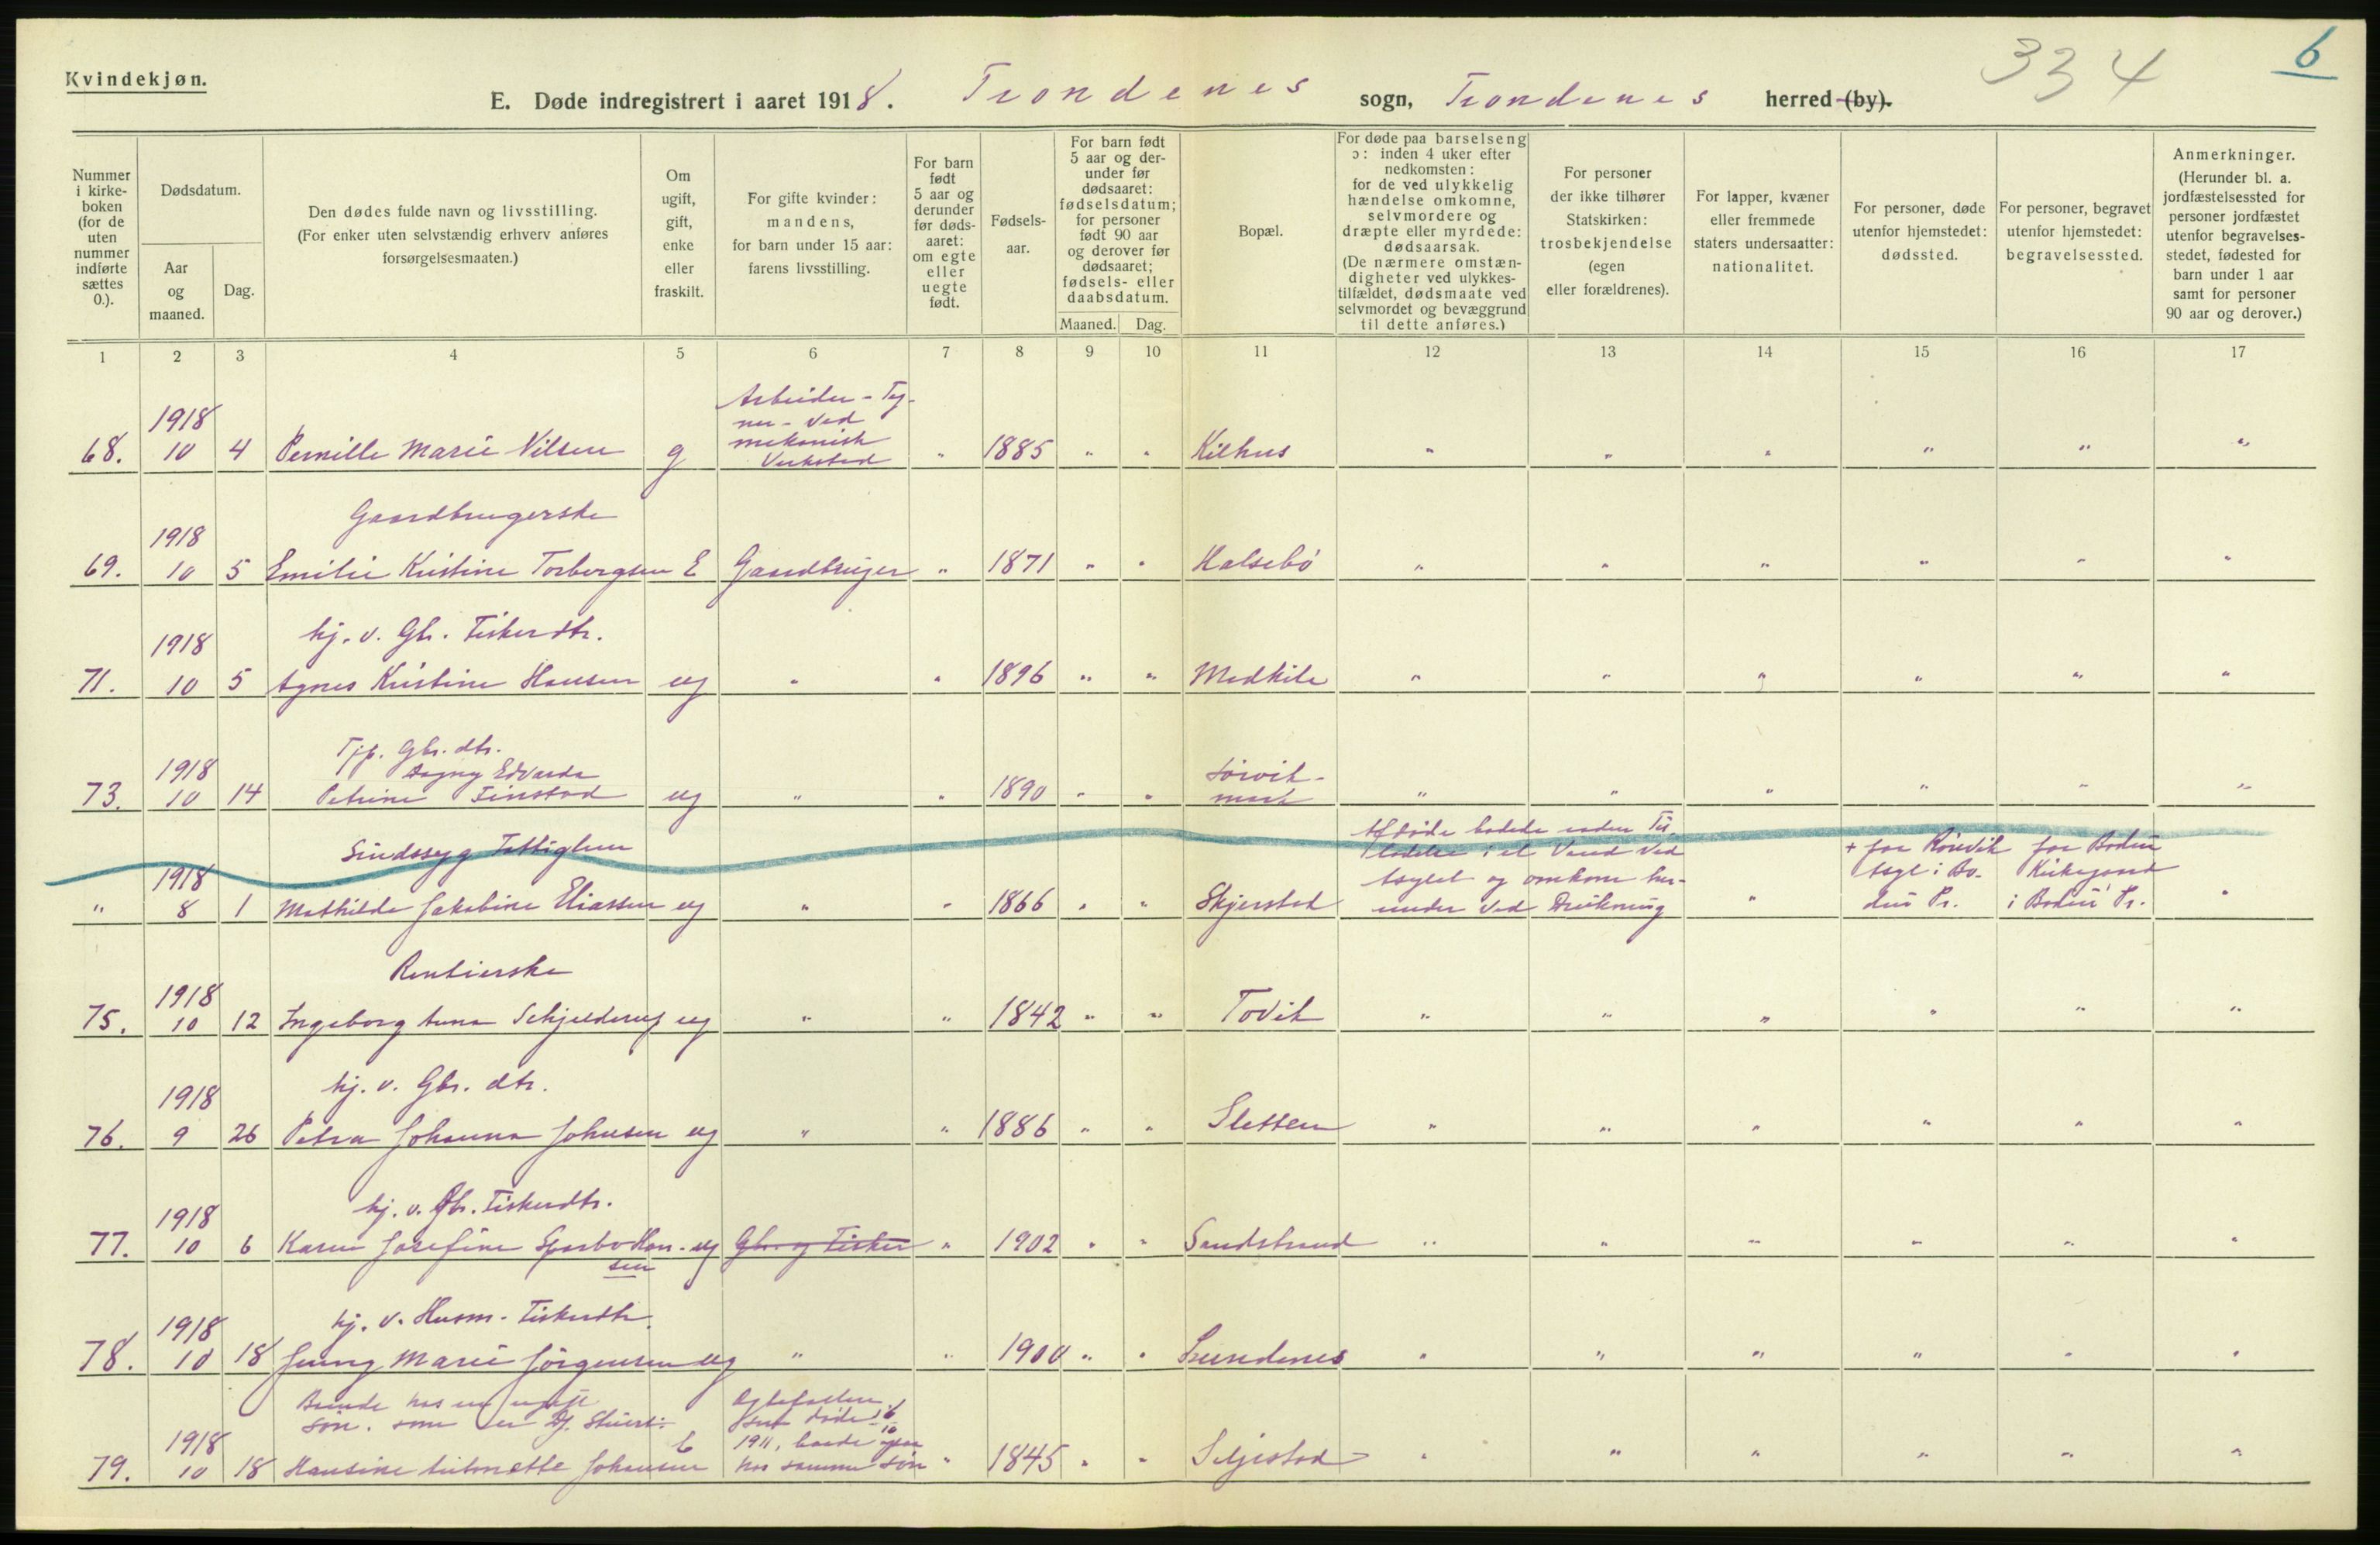 Kvindekjøn.
334
6
E. Døde indregistrert i aaret 1918. Trondenes sogn, Trondenes herred (by).
Nummer i kirkeboken (for de uten nummer indførte sættes 0.).
Dødsdatum.
Aar og maaned.
Dag.
Den dødes fulde navn og livsstilling. (For enker uten selvstændig erhverv anføres forsørgelsesmaaten.)
Om ugift, gift, enke eller fraskilt.
For gifte kvinder: mandens, for barn under 15 aar: farens livsstilling.
For barn født 5 aar og derunder før dødsaaret: om egte eller uegte født.
Fødselsaar.
For barn født 5 aar og derunder før dødsaaret: fødselsdatum; for personer født 90 aar og derover før dødsaaret; fødsels- eller daabsdatum.
Maaned. Dag.
Bopæl.
For døde paa barselseng ɔ: inden 4 uker efter nedkomsten: for de ved ulykkelig hændelse omkomne, selvmordere og dræpte eller myrdede: dødsaarsak. (De nærmere omstændigheter ved ulykkestilfældet, dødsmaate ved selvmordet og bevæggrund til dette anføres.)
For personer der ikke tilhører Statskirken: trosbekjendelse (egen eller forældrenes).
For lapper, kvæner eller fremmede staters undersaatter: nationalitet.
For personer, døde utenfor hjemstedet: dødssted.
For personer, begravet utenfor hjemstedet: begravelsessted.
Anmerkninger. (Herunder bl. a. jordfæstelsessted for personer jordfæstet utenfor begravelsesstedet, fødested for barn under 1 aar samt for personer 90 aar og derover.)
1 2 3 4 5 6 7 8 9 10 11 12 13 14 15 16 17
Arbeider - Teg-
1918 ner - ved
mekanisk
68. 10 4 Pernille Marie Nilsen g Verksted " 1885 " " Kilhus " " " " " "
Gaardbrugerske
1918
69. 10 5 Emilie Kristine Torbergsen E Gaardbruger " 1871 " " Halsebö " " " " " "
hj. v. Gbr. Fiskerdtr.
1918
71. 10 5 Agnes Kristine Hansen ug " " 1896 " " Medkile " " " " " "
Tjp. Gbr. dtr.
1918 Dagny Edvarda Sörvik-
73. 10 14 Petrine Finstad ug " " 1890 " " mark " " " " " "
Sindssyg Fattiglem
Afdöde badede uden Til-
ladelse i et Vand ved + paa Rönvik paa Bodin
1918 Asylet og omkom her- Asyl i Bo- Kirkegaard
" 8 1 Mathilde Jakobine Eliassen ug " " 1866 " " Skjerstad under ved Drukning " din Pr. i Bodin Pr. "
Rentierske
1918
75. 10 12 Ingeborg Anna Schjelderup ug " " 1842 " " Tovik " " " " " "
hj. v. Gbr. dtr.
1918
76. 9 26 Petra Johanna Johnsen ug " " 1886 " " Sletten " " " " " "
hj. v. Gbr. Fiskerdtr.
1918
77. 10 6 Karen Josefine Sparbo Han- ug Gbr. og Fisker " 1902 " " Sandstrand " " " " " "
sen
hj. v. Husm. - Fiskerdtr.
1918
78. 10 18 Jenny Marie Jörgensen ug " " 1900 " " " " " " " "
Boende hos en ugift Ægtefællen
sön. som er Gj. Skuers: som döde 6/10
1918 1911, boede ogsaa
79. 10 18 Hansine Antonette Johansen E hos samme sön " 1845 " " Seljestad " " " " " "